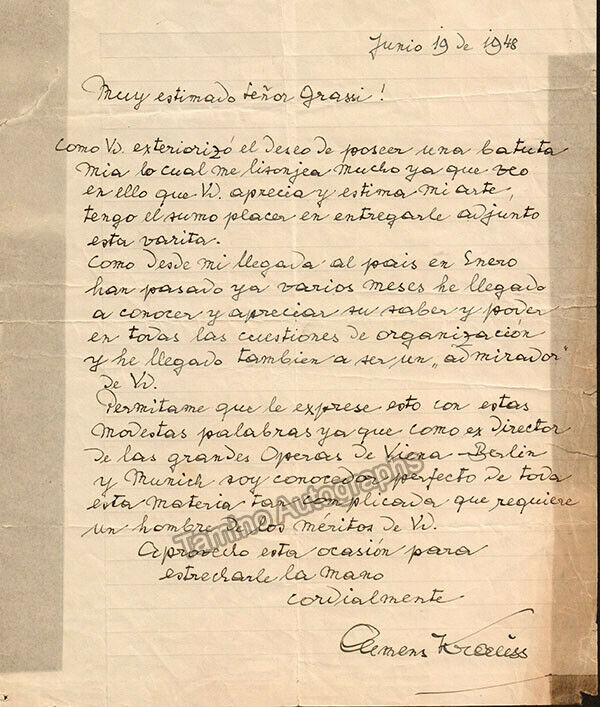 Junio 19 de 1948
Muy estimado Señor Grassi!
Como Vd. exteriorizó el deseo de poseer una batuta
mia lo cual me lisonjea mucho ya que veo
en ello que Vd. aprecia y estima mi arte,
tengo el sumo placer en entregarle adjunto
esta varita.
Como desde mi llegada al pais en Enero
han pasado ya varios meses he llegado
a conocer y apreciar su saber y poder
en todas las cuestiones de organización
y he llegado tambien a ser un „admirador"
de Vd.
Permitame que le exprese esto con estas
modestas palabras ya que como ex director
de las grandes Operas de Viena – Berlin
y Munich soy conocedor perfecto de toda
esta materia tan complicada que requiere
un hombre de los méritos de Vd.
Aprovecho esta ocasión para
estrecharle la mano
cordialmente
Clemens Krauss
Tamino Autographs